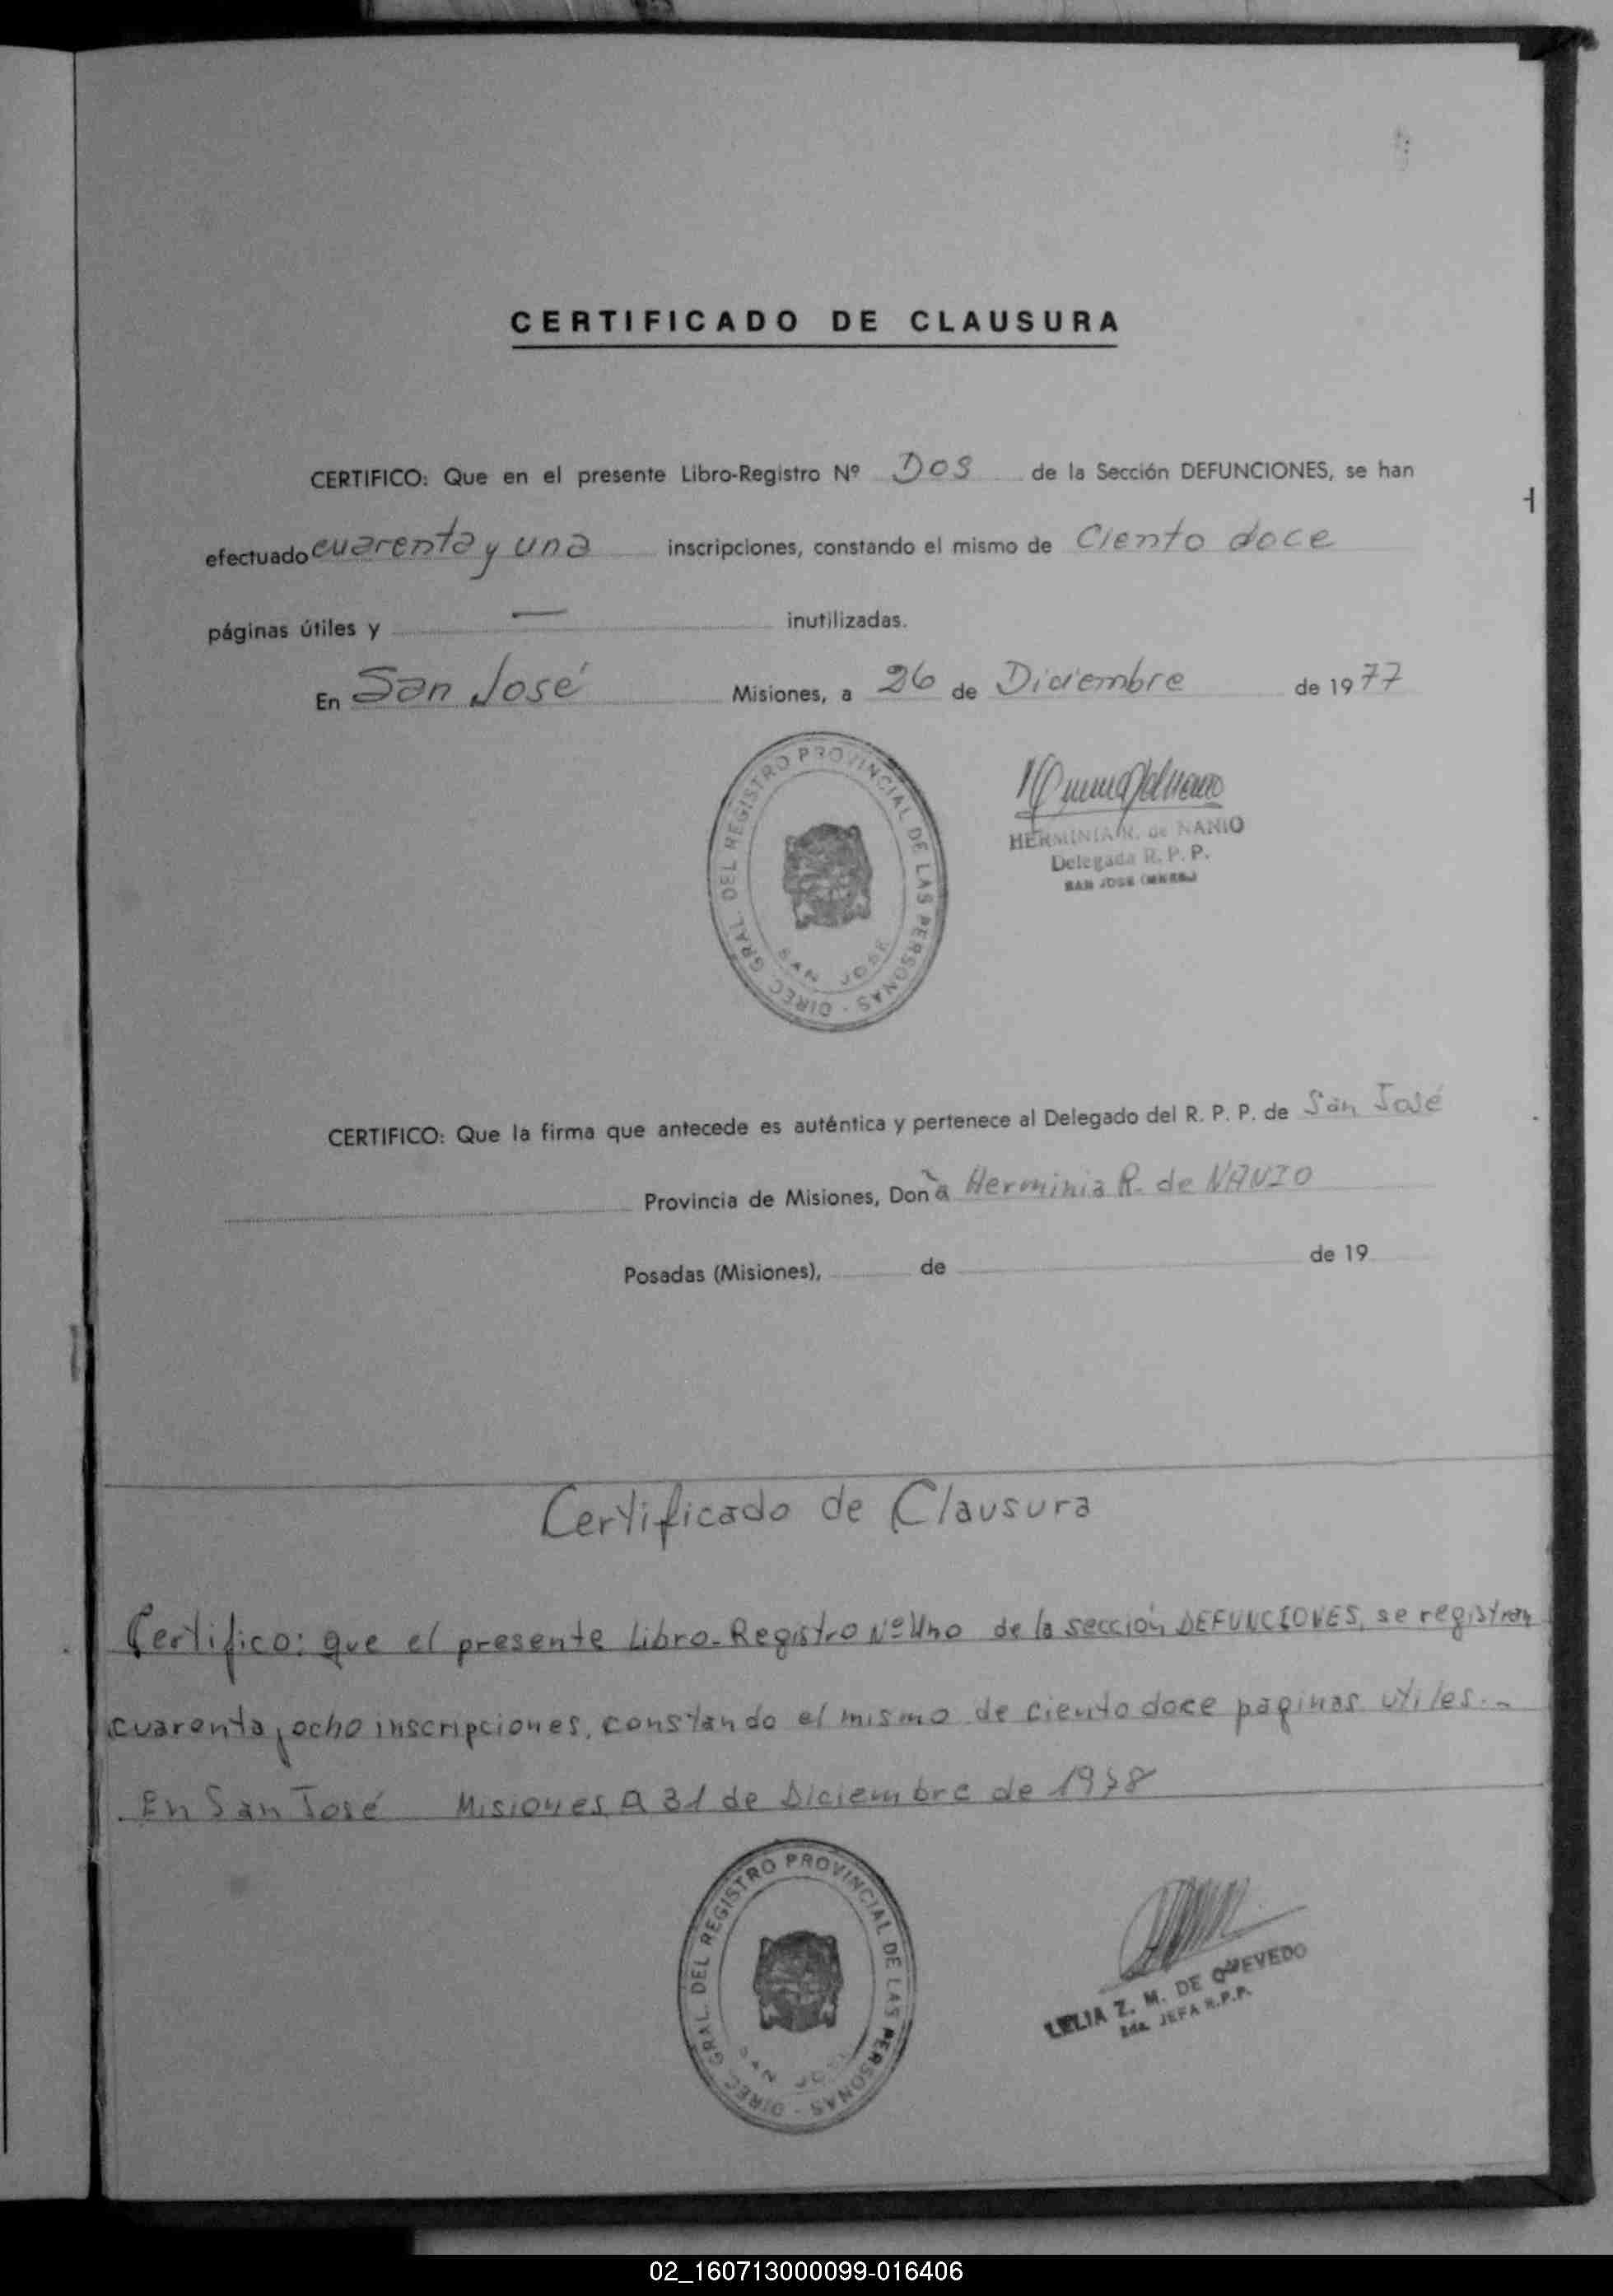 CERTIFICADO DE CLAUSURA
CERTIFICO: Que en el presente Libro-Registro Nº Dos de la Sección DEFUNCIONES, se han
efectuado cuarenta y una inscripciones, constando el mismo de Ciento doce
páginas útiles y — inutilizadas.
En San José Misiones, a 26 de Diciembre de 1977
DIREC GRAL. DEL REGISTRO PROVINCIAL DE LAS PERSONAS -
SAN JOSE
HERMINIA R. de NANIO
Delegada R. P. P.
SAN JOSE (MNES.)
CERTIFICO: Que la firma que antecede es auténtica y pertenece al Delegado del R. P. P. de San José
Provincia de Misiones, Doña Herminia R. de NANIO
Posadas (Misiones), de de 19
Certificado de Clausura
Certifico: que el presente Libro-Registro Nº Uno de la sección DEFUNCIONES, se registran
cuarenta y ocho inscripciones, constando el mismo de ciento doce paginas utiles.-
En San José Misiones, a 31 de Diciembre de 1978
DIREC GRAL. DEL REGISTRO PROVINCIAL DE LAS PERSONAS -
SAN JOSE
LELIA Z. M. DE QUEVEDO
2da. JEFA R.P.P.
02_160713000099-016406